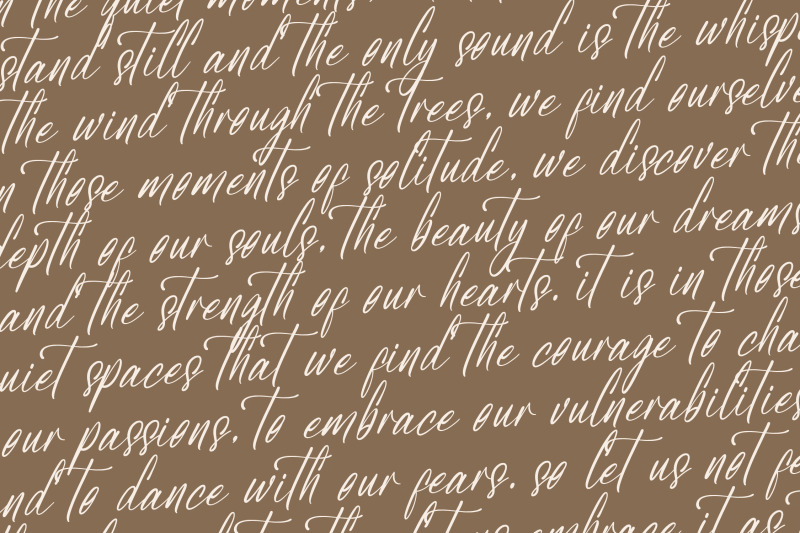 n the quiet moments
stand still and the only sound is the whisp
the wind through the trees. we find ourselve
n those moments of solitude. we discover the
depth of our souls. the beauty of our dreams
and the strength of our hearts. it is in those
uiet spaces that we find the courage to cha
our passions. to embrace our vulnerabilities
nd to dance with our fears. so let us not fe
embrace it as